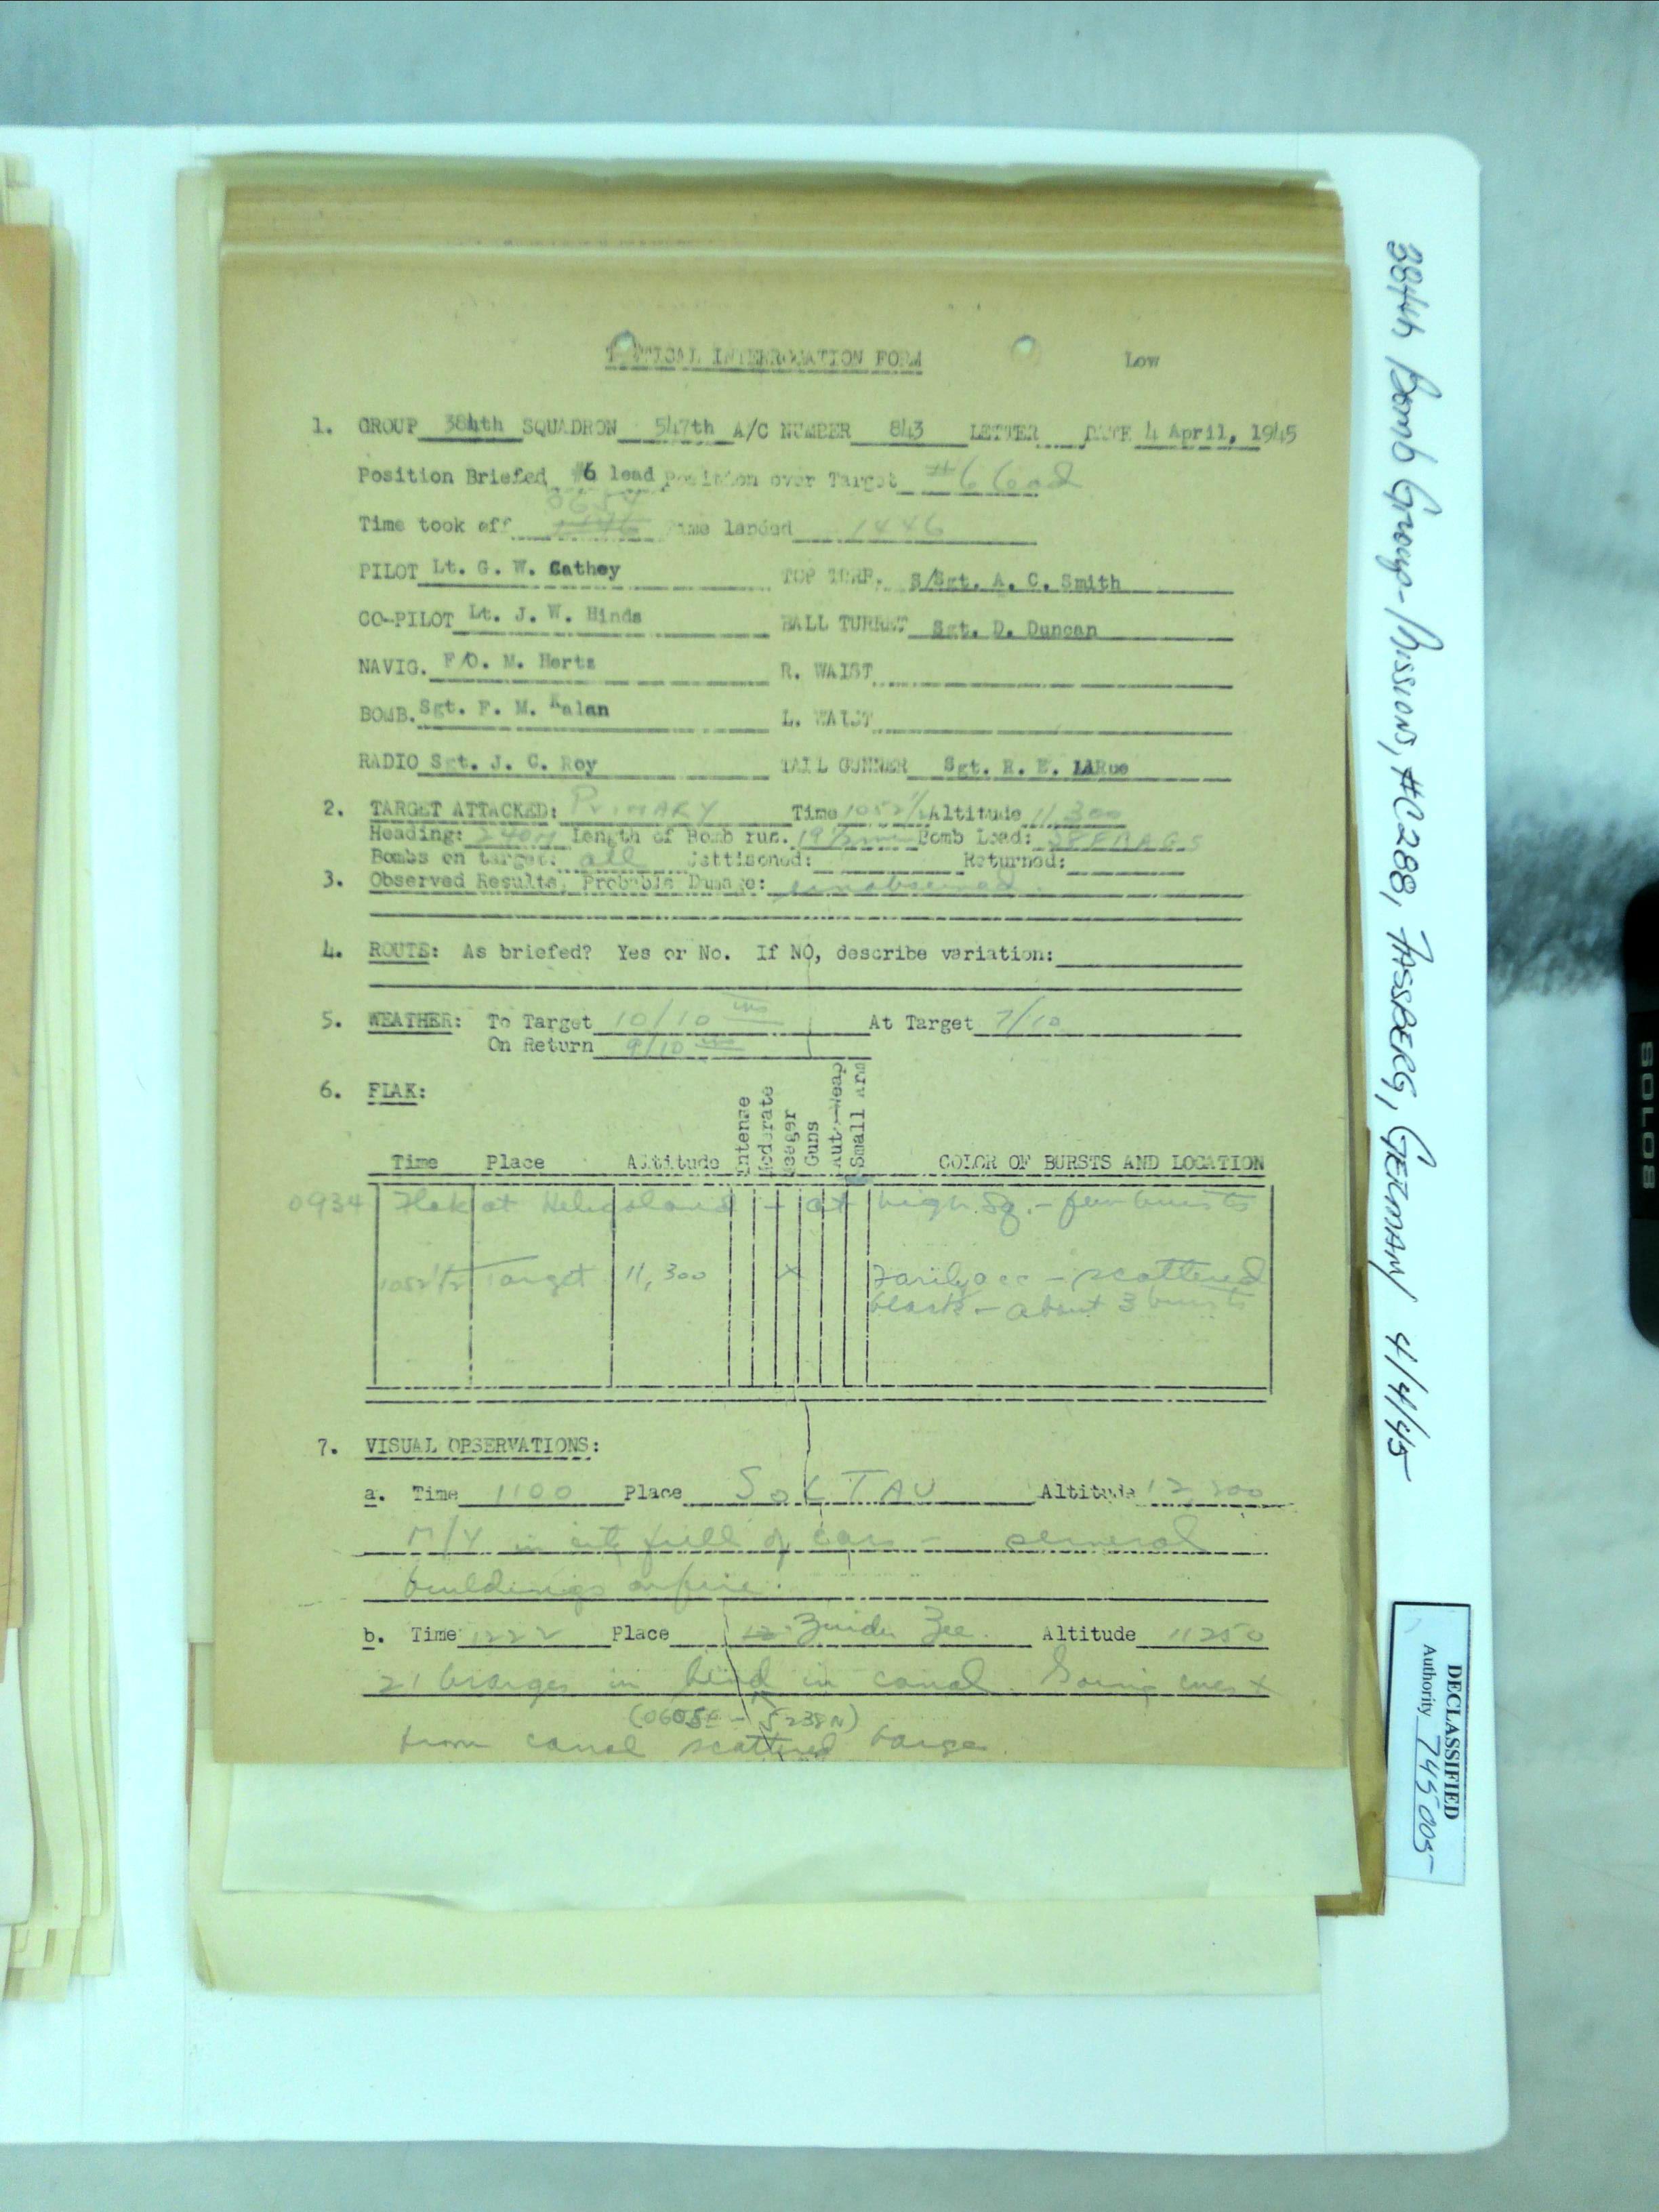 TACTICAL INTERROGATION FORM Low
1. GROUP 384th SQUADRON 547th A/C NUMBER 843 LETTER DATE 4 April, 1945
Position Briefed #6 lead Position over Target #6 lead
Time took off Time landed 1446
PILOT Lt. G. W. Cathey TOP TURR. S/Sgt. A. C. Smith
CO-PILOT Lt. J. W. Hinds BALL TURRET Sgt. D. Duncan
NAVIG. F/O. M. Hertz R. WAIST
BOMB. Sgt. F. M. Kalan L. WAIST
RADIO Sgt. J. C. Roy TAIL GUNNER Sgt. R. E. LARue
2. TARGET ATTACKED: PRIMARY Time 1052 1/2 Altitude 11,300
Heading: 240M Length of Bomb run. Bomb Load: 38 FRAGS
Bombs on target: all Jettisoned: Returned:
3. Observed Results, Probable Damage: unobserved.
4. ROUTE: As briefed? Yes or No. If NO, describe variation:
5. WEATHER: To Target 10/10 At Target 7/10
On Return 9/10
6. FLAK:
Time Place Altitude Intense Moderate Meager Guns Aut.-Weap Small Arm COLOR OF BURSTS AND LOCATION
0934 Flak at Heligoland - at high Sq. - few bursts
1052 1/2 Target 11,300 X Fairly acc - scattered
black - about 3 bursts
7. VISUAL OBSERVATIONS:
a. Time 1100 Place SOLTAU Altitude 12,800
M/Y in city full of cars - several
buildings on fire.
b. Time 1222 Place Zuider Zee. Altitude 11250
21 barges in bend in canal. Going west
(0605E - 5238N)
from canal scattered barge
384th Bomb Group - Missions, #C288, FASSBERG, GERMANY 4/4/45
DECLASSIFIED
Authority 745005
SOLO8